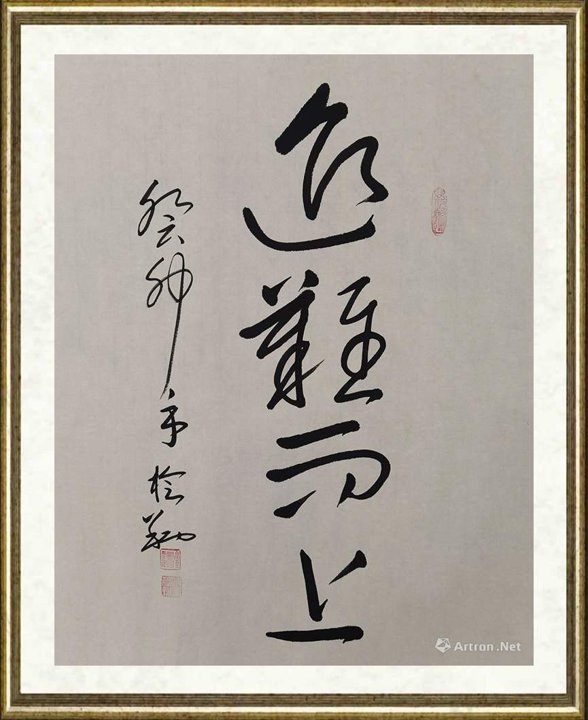 迎難而上
癸卯
Artron.Net